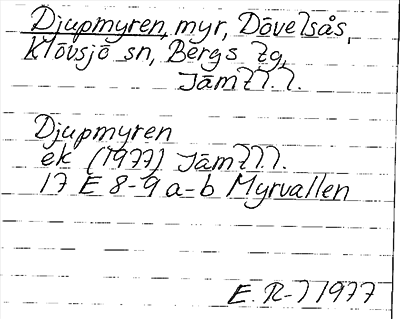 Djupmyren, myr, Dövelsås,
Klövsjö sn, Bergs tg,
Jämtl. l.
Djupmyren
ek (1977) Jämtl.
17 E 8-9 a-b Myrvallen
E. R-l 1977